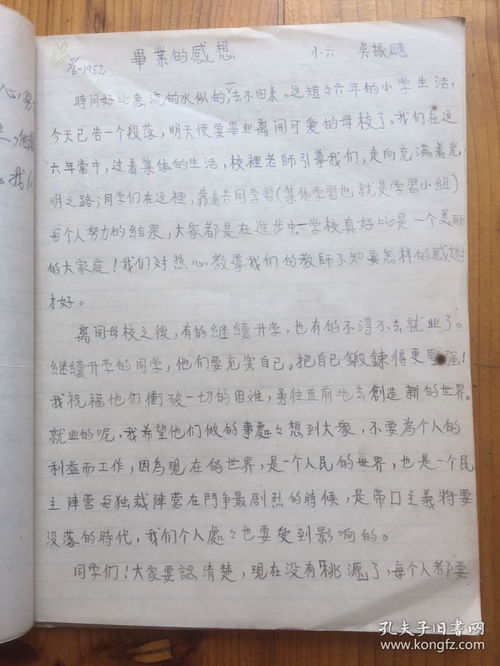 5/6-1952
畢業的感想
小六 吴振
時間好比急流的水似的,一去不回来。这短々六年的小学生活,
今天已告一个段落,明天便要畢业离開可爱的母校了。我们在这
六年當中,过着集体的生活,校裡老師引導我们,走向充滿着光
明之路;同学们在这裡,靠着共同学習(集体学習也就是学習小組)
每个人努力的結果,大家都是在進步中。学校真好比是一个美丽
的大家庭!我们对热心教導我们的教師不知要怎样的感謝
才好。
离開母校之後,有的继續升学,也有的不得不去就业了。
继續升学的同学,他们要充实自己,把自己鍛鍊得更堅强!
我祝福他们衝破一切的困难,勇往直前地去創造新的世界。
就业的呢,我希望他们做的事處々想到大衆,不要為个人的
利益而工作,因為現在的世界,是一个人民的世界,也是一个民
主陣营与独裁陣营在鬥争最剧烈的時候,是帝口主義將要
没落的時代,我们个人處々也要受到影响的。
同学们!大家要認清楚,現在没有桃源了,每个人都要
心
我
孔夫子旧书网
www.kongfz.com